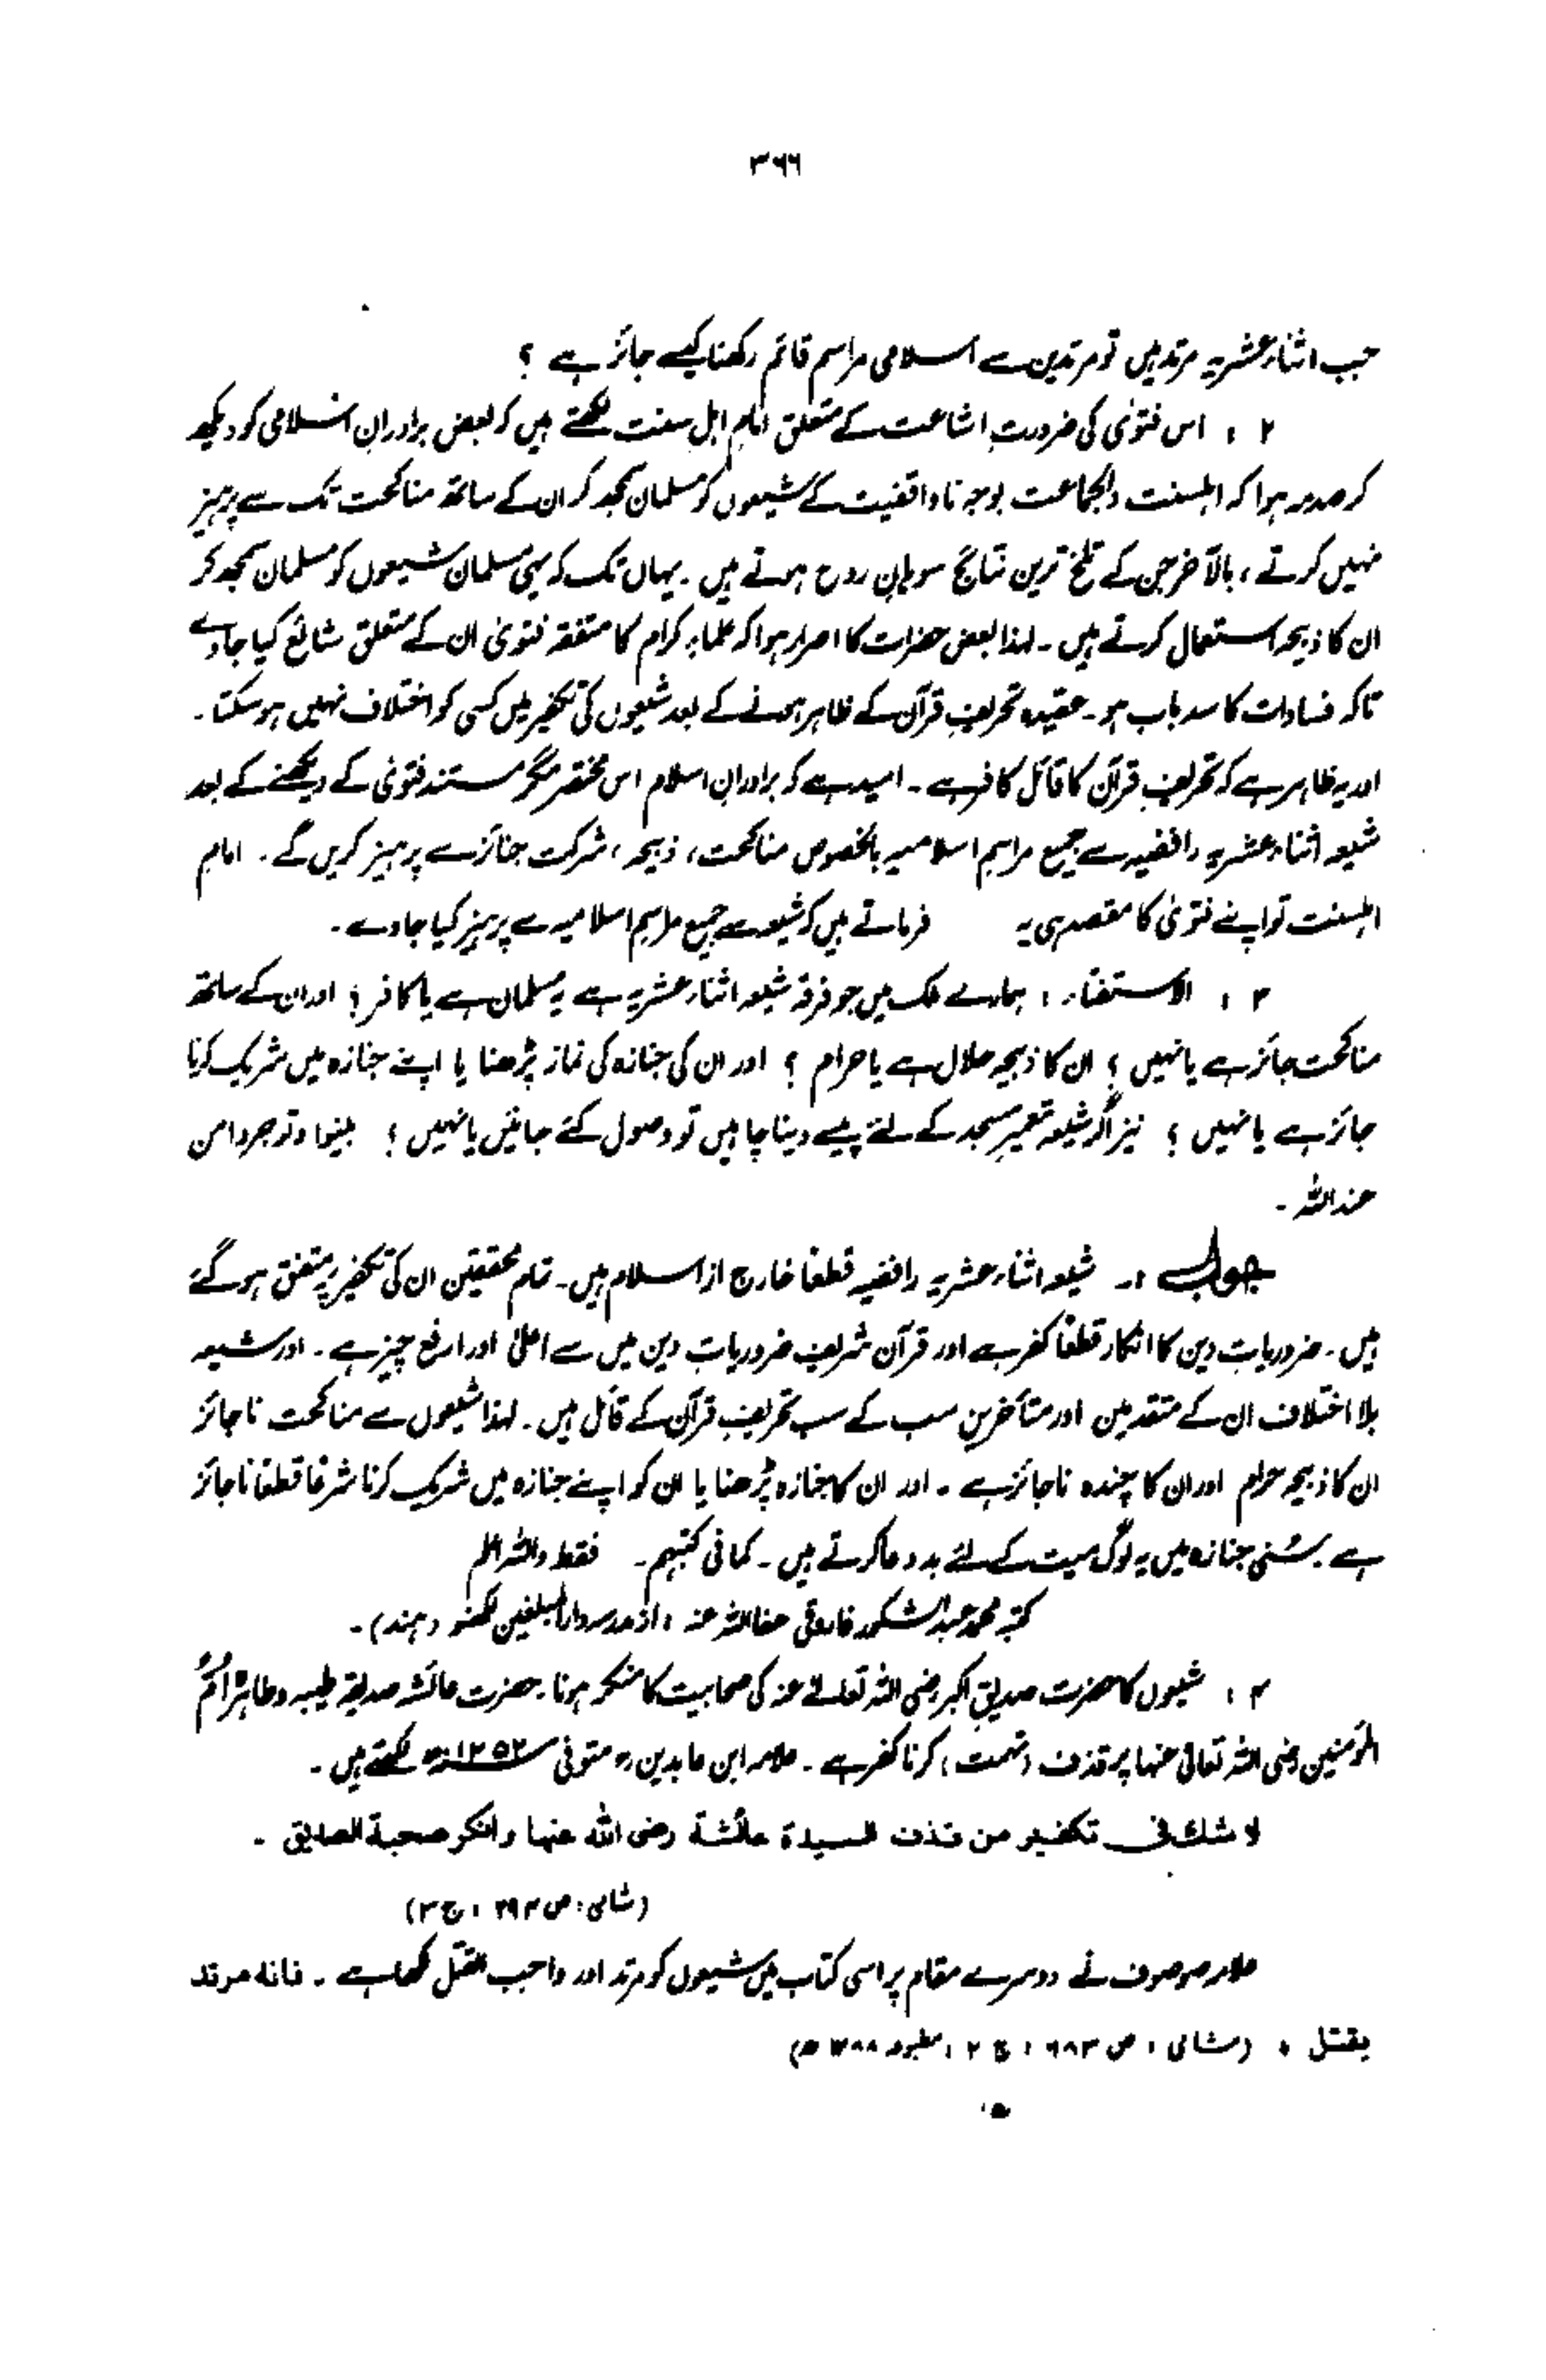 ۳۶۶
جب اثناء عشریہ مرتد ہیں تو مرتدین سے اسلامی مراسم قائم رکھنا کیسے جائز ہے ؟
۲ : اس فتویٰ کی ضرورتِ اشاعت کے متعلق امام اہل سنت لکھتے ہیں کہ بعض برادرانِ اسلامی کو دیکھ
کر صدمہ ہوا کہ اہلسنت والجماعت بوجہ ناواقفیت کے شیعوں کو مسلمان سمجھ کر ان کے ساتھ مناکحت تک سے پرہیز
نہیں کرتے ، بالآخر جن کے تلخ ترین نتائج سوہانِ روح ہوتے ہیں ۔ یہاں تک کہ سنی مسلمان شیعوں کو مسلمان سمجھ کر
ان کا ذبیحہ استعمال کرتے ہیں ۔ لہذا بعض حضرات کا اصرار ہوا کہ علماء کرام کا متفقہ فتویٰ ان کے متعلق شائع کیا جاوے
تاکہ فسادات کا سدباب ہو ۔ عقیدہ تحریفِ قرآن کے ظاہر ہونے کے بعد شیعوں کی تکفیر میں کسی کو اختلاف نہیں ہو سکتا ۔
اور یہ ظاہر ہے کہ تحریفِ قرآن کا قائل کافر ہے ۔ امید ہے کہ برادرانِ اسلام اس مختصر مگر مستند فتویٰ کے دیکھنے کے بعد
شیعہ اثناء عشریہ رافضیہ سے جمیع مراسم اسلامیہ بالخصوص مناکحت ، ذبیحہ ، شرکت جنائز سے پرہیز کریں گے ۔ امام
اہلسنت تو اپنے فتویٰ کا مقصد ہی یہ فرماتے ہیں کہ شیعہ سے جمیع مراسم اسلامیہ سے پرہیز کیا جاوے ۔
۳ : الاستفتاء : ہمارے ملک میں جو فرقہ شیعہ اثناء عشریہ ہے یہ مسلمان ہے یا کافر ؟ اور ان کے ساتھ
مناکحت جائز ہے یا نہیں ؟ ان کا ذبیحہ حلال ہے یا حرام ؟ اور ان کی جنازہ کی نماز پڑھنا یا اپنے جنازہ میں شریک کرنا
جائز ہے یا نہیں ؟ نیز اگر شیعہ تعمیرِ مسجد کے لئے پیسے دینا چاہیں تو وصول کئے جائیں یا نہیں ؟ بینوا وتوجروا من
عند اللہ ۔
جواب :۔ شیعہ اثناء عشریہ رافضیہ قطعاً خارج از اسلام ہیں ۔ تمام محققین ان کی تکفیر پر متفق ہو گئے
ہیں ۔ ضروریاتِ دین کا انکار قطعاً کفر ہے اور قرآن شریف ضروریاتِ دین میں سے اعلیٰ اور ارفع چیز ہے ۔ اور شیعہ
بلا اختلاف ان کے متقدمین اور متأخرین سب کے سب تحریفِ قرآن کے قائل ہیں ۔ لہذا شیعوں سے مناکحت ناجائز
ان کا ذبیحہ حرام اور ان کا چندہ ناجائز ہے ۔ اور ان کا جنازہ پڑھنا یا ان کو اپنے جنازہ میں شریک کرنا شرعاً قطعاً ناجائز
ہے ۔ سُنی جنازہ میں یہ لوگ میت کے لئے بددعا کرتے ہیں ۔ کما فی کتبہم ۔ فقط واللہ اعلم
کتبہ محمد عبدالشکور فاروقی عفا اللہ عنہ ، از مدرسہ دارالمبلغین لکھنو (ہند) ۔
۴ : شیعوں کا حضرت صدیقِ اکبر رضی اللہ تعالےٰ عنہ کی صحابیت کا منکر ہونا ۔ حضرت عائشہ صدیقہ طیبہ وطاہرہ ام
المؤمنین رضی اللہ تعالیٰ عنہا پر قذف (تہمت) کرنا کفر ہے ۔ علامہ ابن عابدین رہ متوفی ۱۲۵۲ھ لکھتے ہیں ۔
لا شك فى تكفير من قذف السيدة عائشة رضى الله عنها وانكر صحبة الصديق ۔
(شامی : ص ۲۹۴ ، ج ۳)
علامہ موصوف نے دوسرے مقام پر اسی کتاب میں شیعوں کو مرتد اور واجب القتل لکھا ہے ۔ فانه مرتد
يقتل ، (شامی ، ص ۶۸۳ ، ج ۲ ، مطبوعہ ۱۲۸۸ ھ)